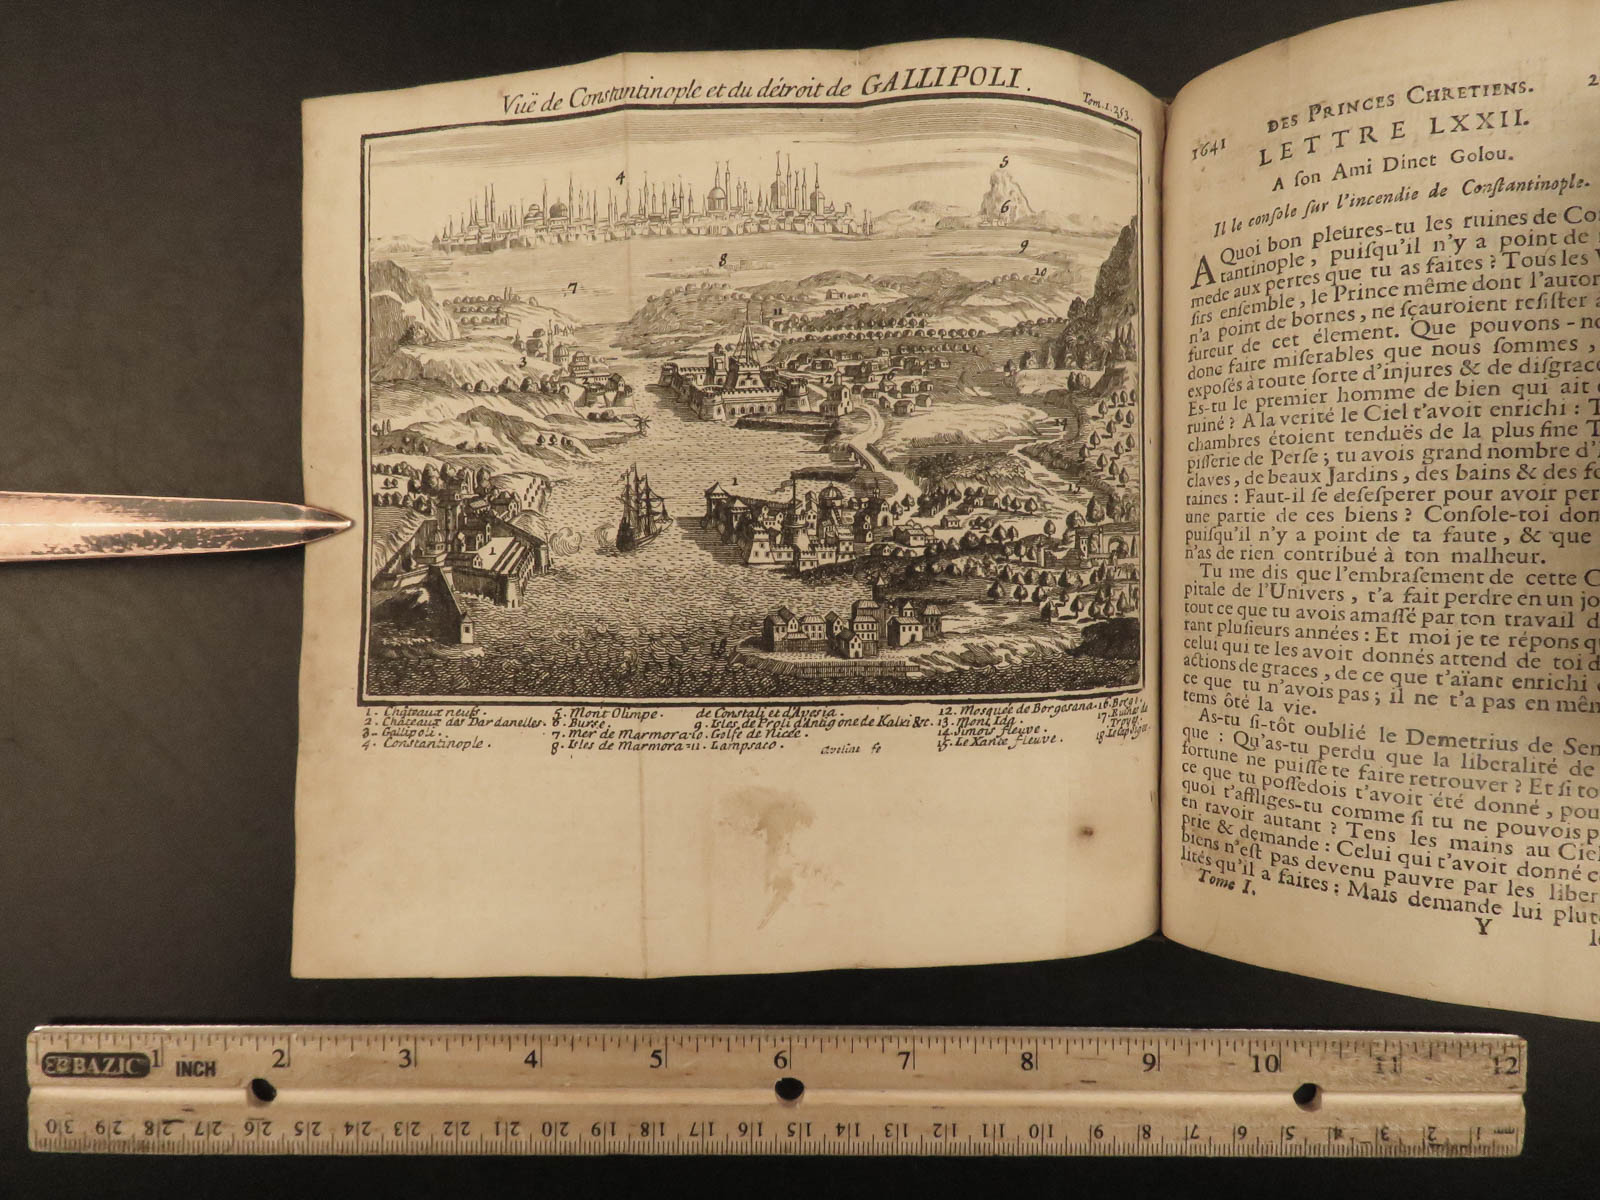 Vuë de Constantinople et du détroit de GALLIPOLI.
Tom. 1. 253.
4
5
6
7
8
9
10
3
2
2
1
1
14
15
1. Châteaux neufs.
2. Châteaux des Dardanelles.
3. Gallipoli.
4. Constantinople.
5. Mont Olimpe.
6. Burse.
7. Mer de Marmora
8. Isles de Marmora
de Constali et d'Avesia.
9. Isles de Proli d'Antigone de Kalki &c.
10. Golfe de Nicée.
11. Lampsaco.
Aveline fe
12. Mosquée de Borgesana
13. Mont Ida.
14. Simois fleuve.
15. Le Xante fleuve.
17. Ruines de
Troye.
1641
DES PRINCES CHRETIENS.
2
LETTRE LXXII.
A ſon Ami Dinet Golou.
Il le conſole ſur l'incendie de Conſtantinople.
A Quoi bon pleures-tu les ruines de Co
tantinople, puiſqu'il n'y a point de
mede aux pertes que tu as faites? Tous les V
ſirs enſemble, le Prince même dont l'autor
n'a point de bornes, ne ſçauroient reſiſter a
fureur de cet élement. Que pouvons-no
donc faire miſerables que nous ſommes,
expoſés à toute ſorte d'injures & de diſgrace
Es-tu le premier homme de bien qui ait
ruiné? A la verité le Ciel t'avoit enrichi: T
chambres étoient tenduës de la plus fine T
piſſerie de Perſe; tu avois grand nombre d'
claves, de beaux Jardins, des bains & des fo
taines: Faut-il ſe deſeſperer pour avoir per
une partie de ces biens? Conſole-toi don
puiſqu'il n'y a point de ta faute, & que
n'as de rien contribué à ton malheur.
Tu me dis que l'embraſement de cette C
pitale de l'Univers, t'a fait perdre en un jo
tout ce que tu avois amaſſé par ton travail d
rant pluſieurs années: Et moi je te répons qu
celui qui te les avoit donnés attend de toi d
actions de graces, de ce que t'aïant enrichi
ce que tu n'avois pas; il ne t'a pas en mêm
tems ôté la vie.
As-tu ſi-tôt oublié le Demetrius de Sen
que: Qu'as-tu perdu que la liberalité de
fortune ne puiſſe te faire retrouver? Et ſi to
ce que tu poſſedois t'avoit été donné, pou
quoi t'affliges-tu comme ſi tu ne pouvois p
en ravoir autant? Tens les mains au Ciel
prie & demande: Celui qui t'avoit donné c
biens n'eſt pas devenu pauvre par les liber
lités qu'il a faites: Mais demande lui plutô
Tome I.
Y
BAZIC
INCH
1 2 3 4 5 6 7 8 9 10 11 12
30 29 28 27 26 25 24 23 22 21 20 19 18 17 16 15 14 13 12 11 10 9 8 7 6 5 4 3 2 1 mm